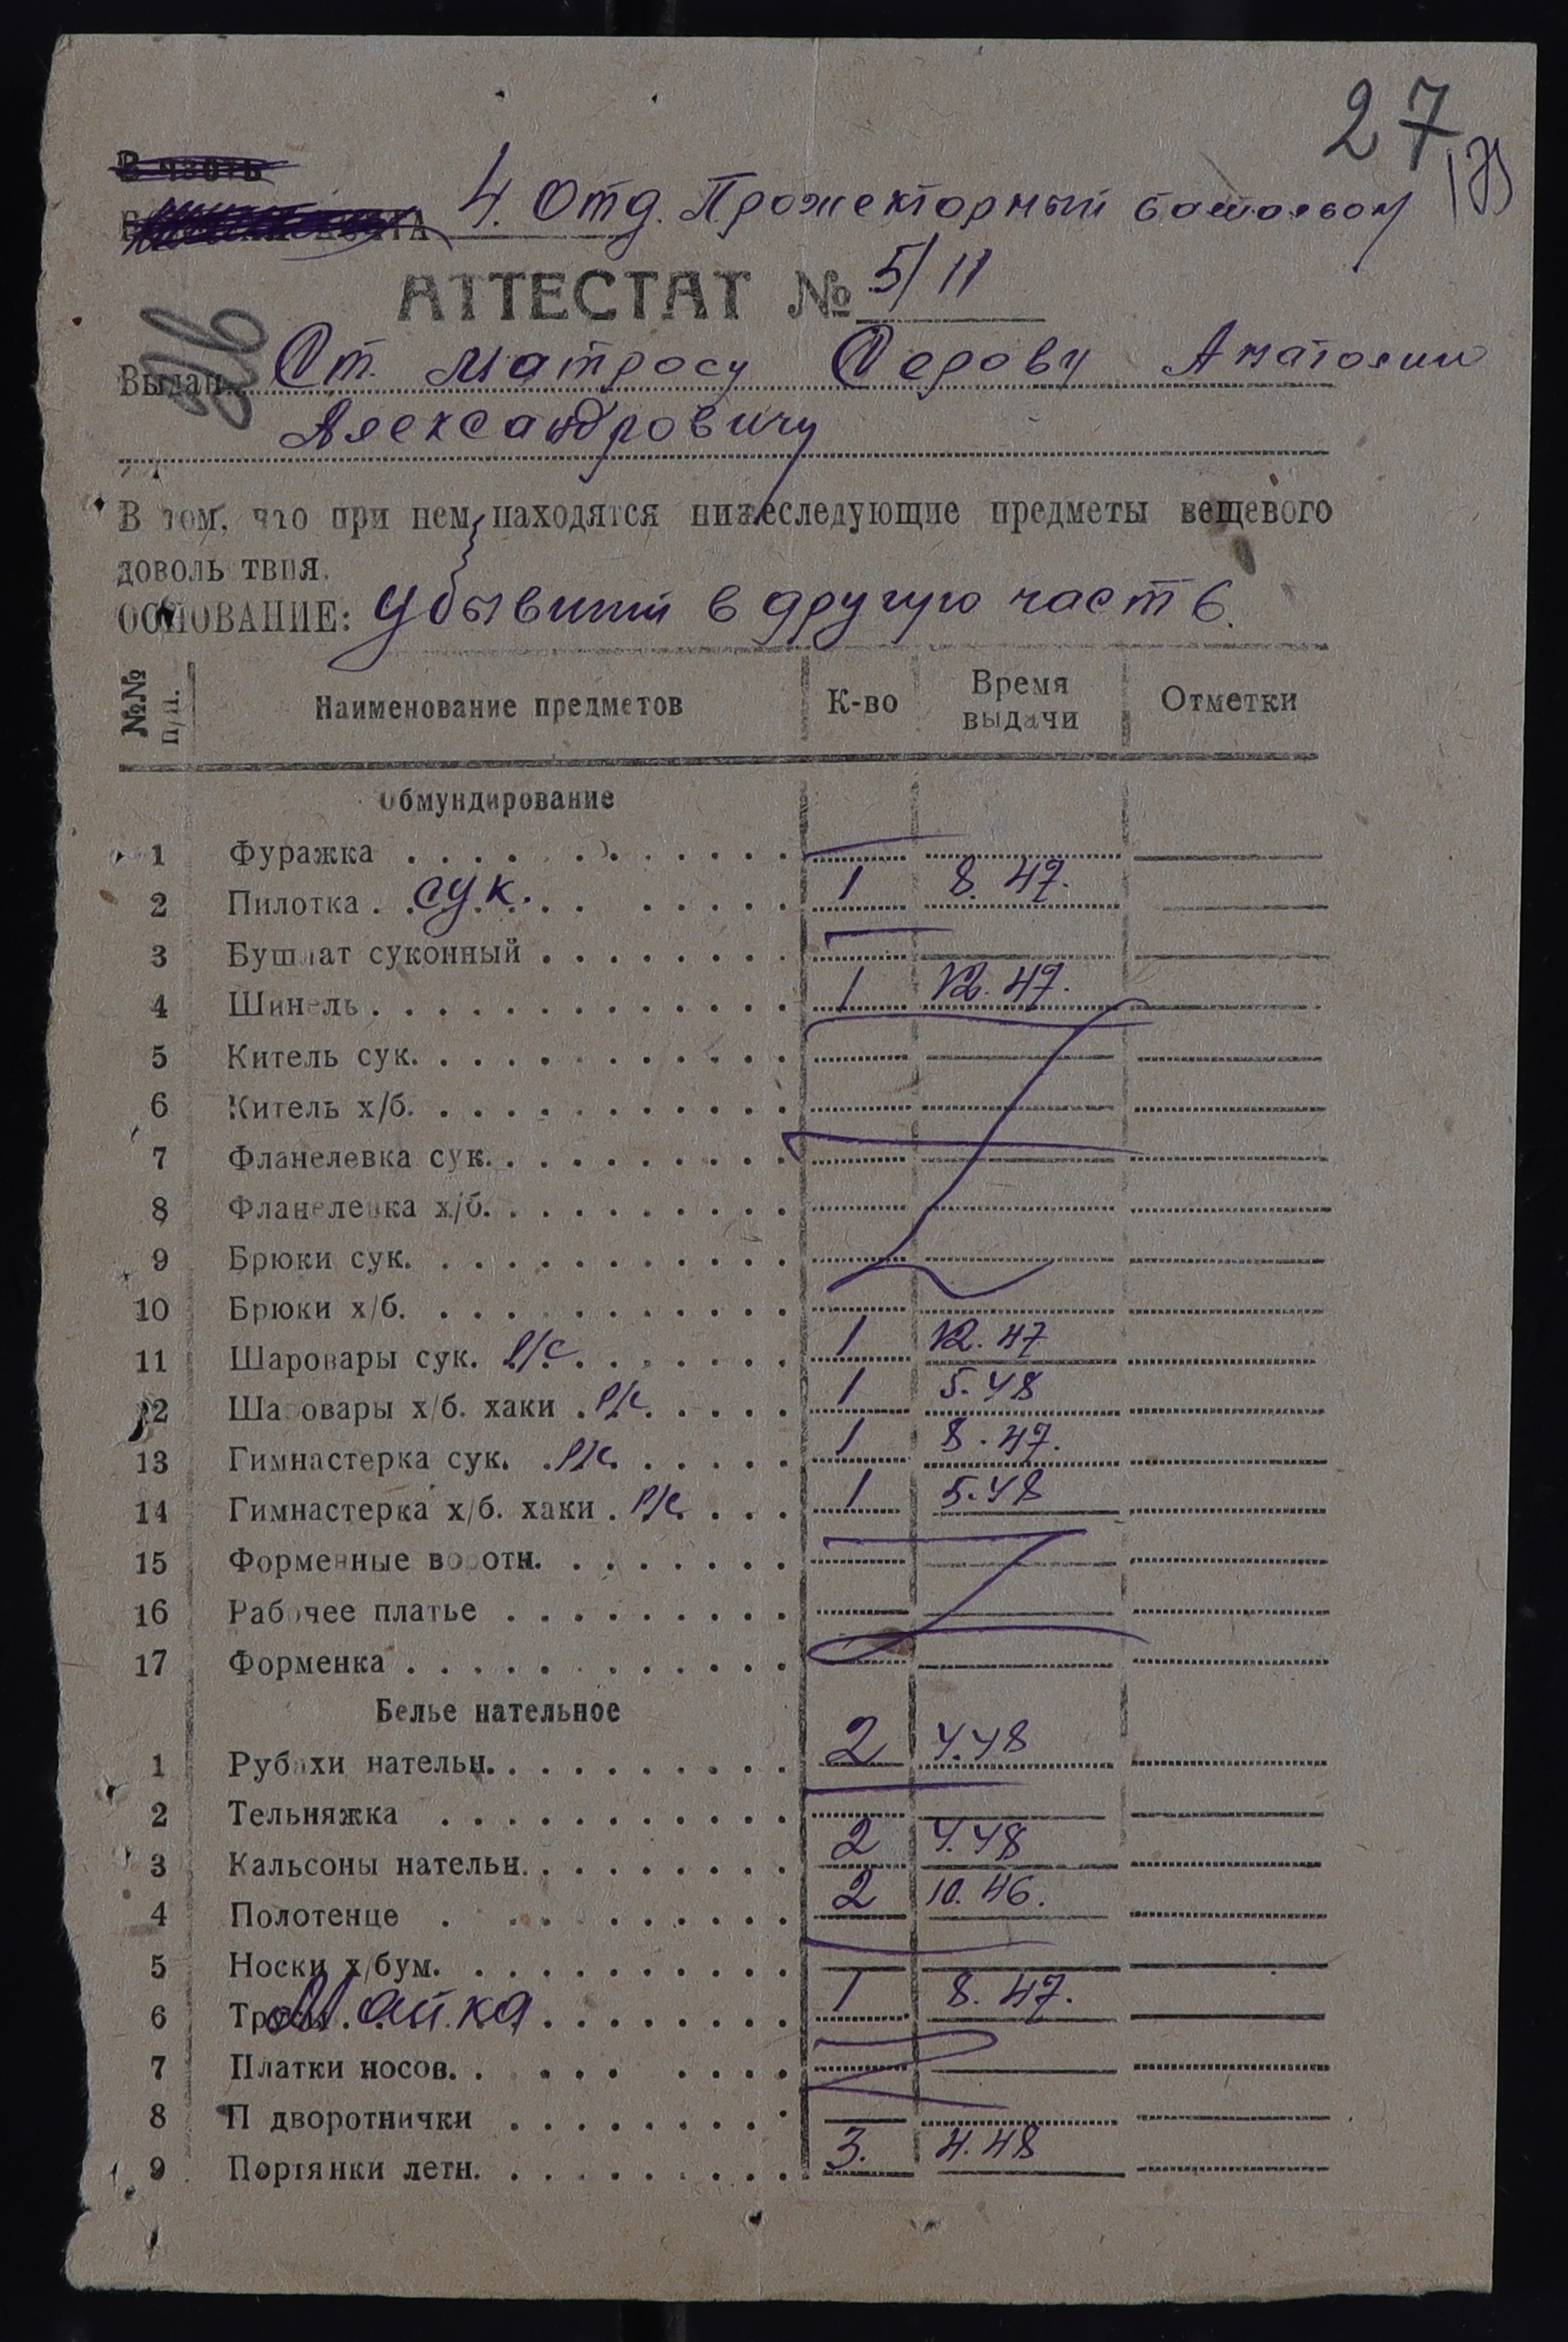 27
В часть
4. Отд. Прожекторный батальон
АТТЕСТАТ № 5/11
Выдан Ст. матросу Серову Анатолию
Александровичу
В том, что при нем находятся нижеследующие предметы вещевого
довольствия.
ОСНОВАНИЕ: Убывший в другую часть.
№№ п/п. Наименование предметов К-во Время выдачи Отметки
Обмундирование
1 Фуражка
2 Пилотка сук. 1 8.47.
3 Бушлат суконный
4 Шинель 1 12.47.
5 Китель сук.
6 Китель х/б.
7 Фланелевка сук.
8 Фланелевка х/б.
9 Брюки сук.
10 Брюки х/б.
11 Шаровары сук. р/с 1 12.47
12 Шаровары х/б. хаки р/с 1 5.48
13 Гимнастерка сук. р/с 1 8.47.
14 Гимнастерка х/б. хаки р/с 1 5.48
15 Форменные воротн.
16 Рабочее платье
17 Форменка
Белье нательное
1 Рубахи нательн. 2 4.48
2 Тельняжка
3 Кальсоны нательн. 2 4.48
4 Полотенце 2 10.46.
5 Носки х/бум.
6 Трусы Майка 1 8.47.
7 Платки носов.
8 П дворотнички
9 Портянки летн. 3. 4.48